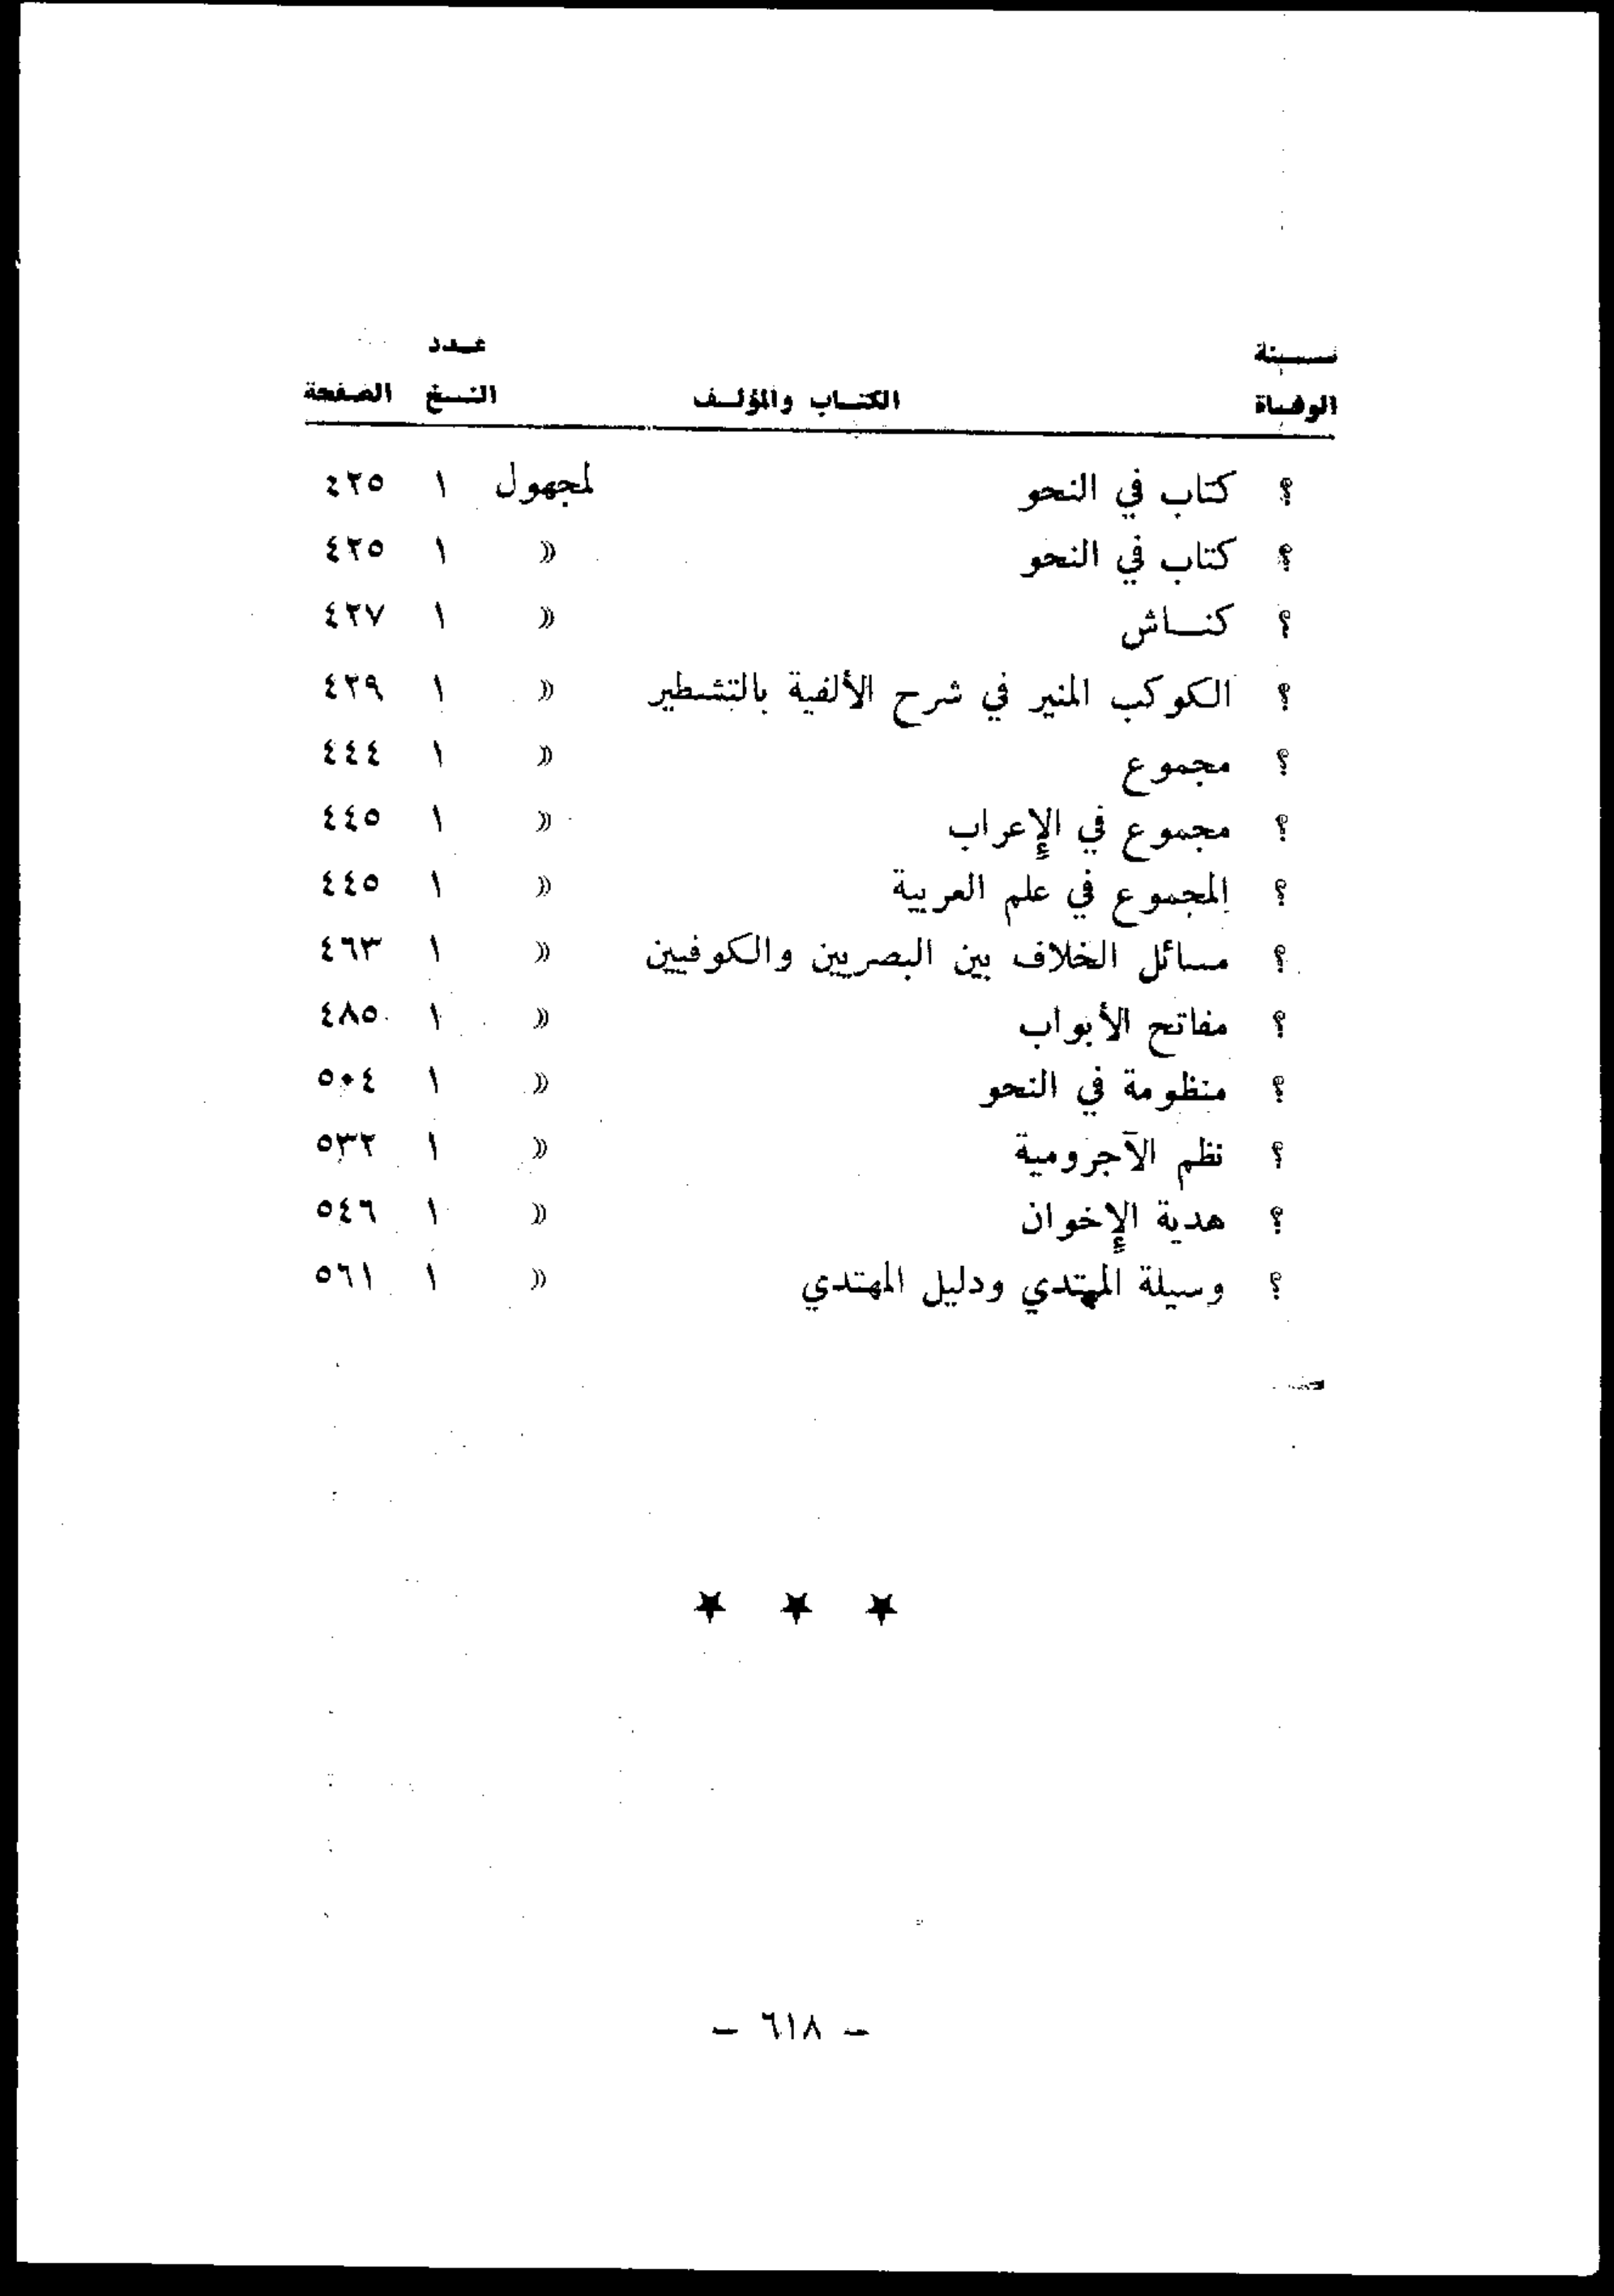 سنة عدد
الوفاة الكتاب والمؤلف النسخ الصفحة
؟ كتاب في النحو لمجهول ١ ٤٢٥
؟ كتاب في النحو » ١ ٤٢٥
؟ كناش » ١ ٤٢٧
؟ الكوكب المنير في شرح الألفية بالتشطير » ١ ٤٢٩
؟ مجموع » ١ ٤٤٤
؟ مجموع في الإعراب » ١ ٤٤٥
؟ المجموع في علم العربية » ١ ٤٤٥
؟ مسائل الخلاف بين البصريين والكوفيين » ١ ٤٦٣
؟ مفاتح الأبواب » ١ ٤٨٥
؟ منظومة في النحو » ١ ٥٠٤
؟ نظم الآجرومية » ١ ٥٣٢
؟ هدية الإخوان » ١ ٥٤٦
؟ وسيلة المهتدي ودليل المهتدي » ١ ٥٦١
★ ★ ★
– ٦١٨ –